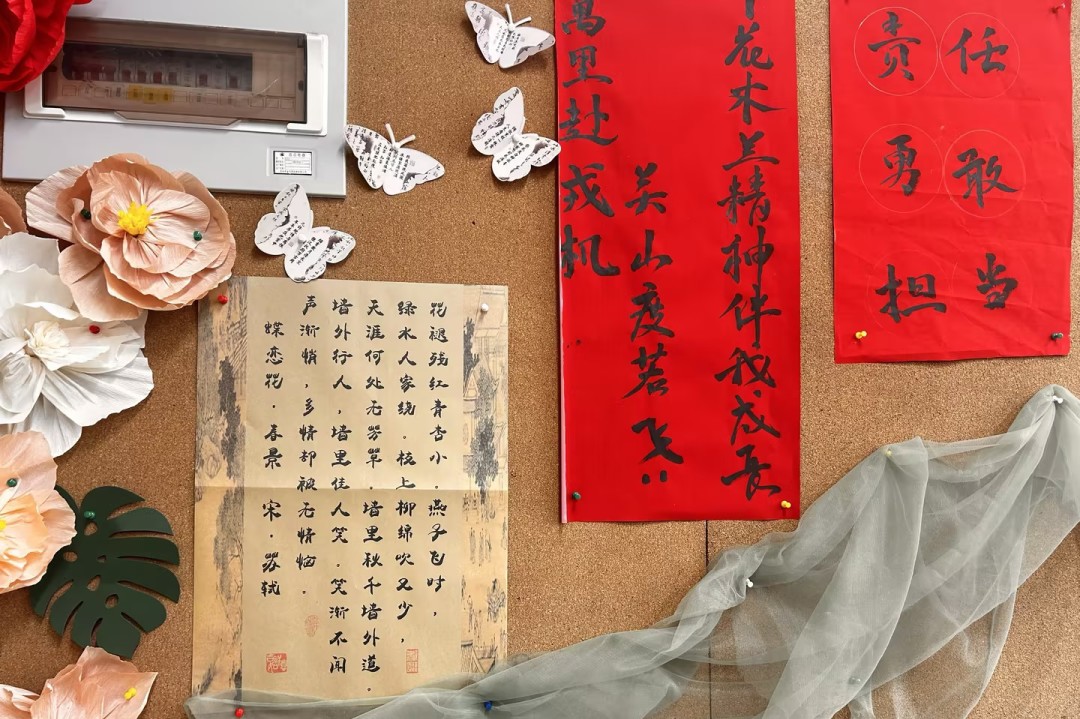 责任
勇敢
担当
花木兰精神伴我成长
萬里赴戎机
关山度若飞
花褪残红青杏小。燕子飞时，
绿水人家绕。枝上柳绵吹又少，
天涯何处无芳草。墙里秋千墙外道。
墙外行人，墙里佳人笑。笑渐不闻
声渐悄，多情却被无情恼。
蝶恋花·春景 宋·苏轼